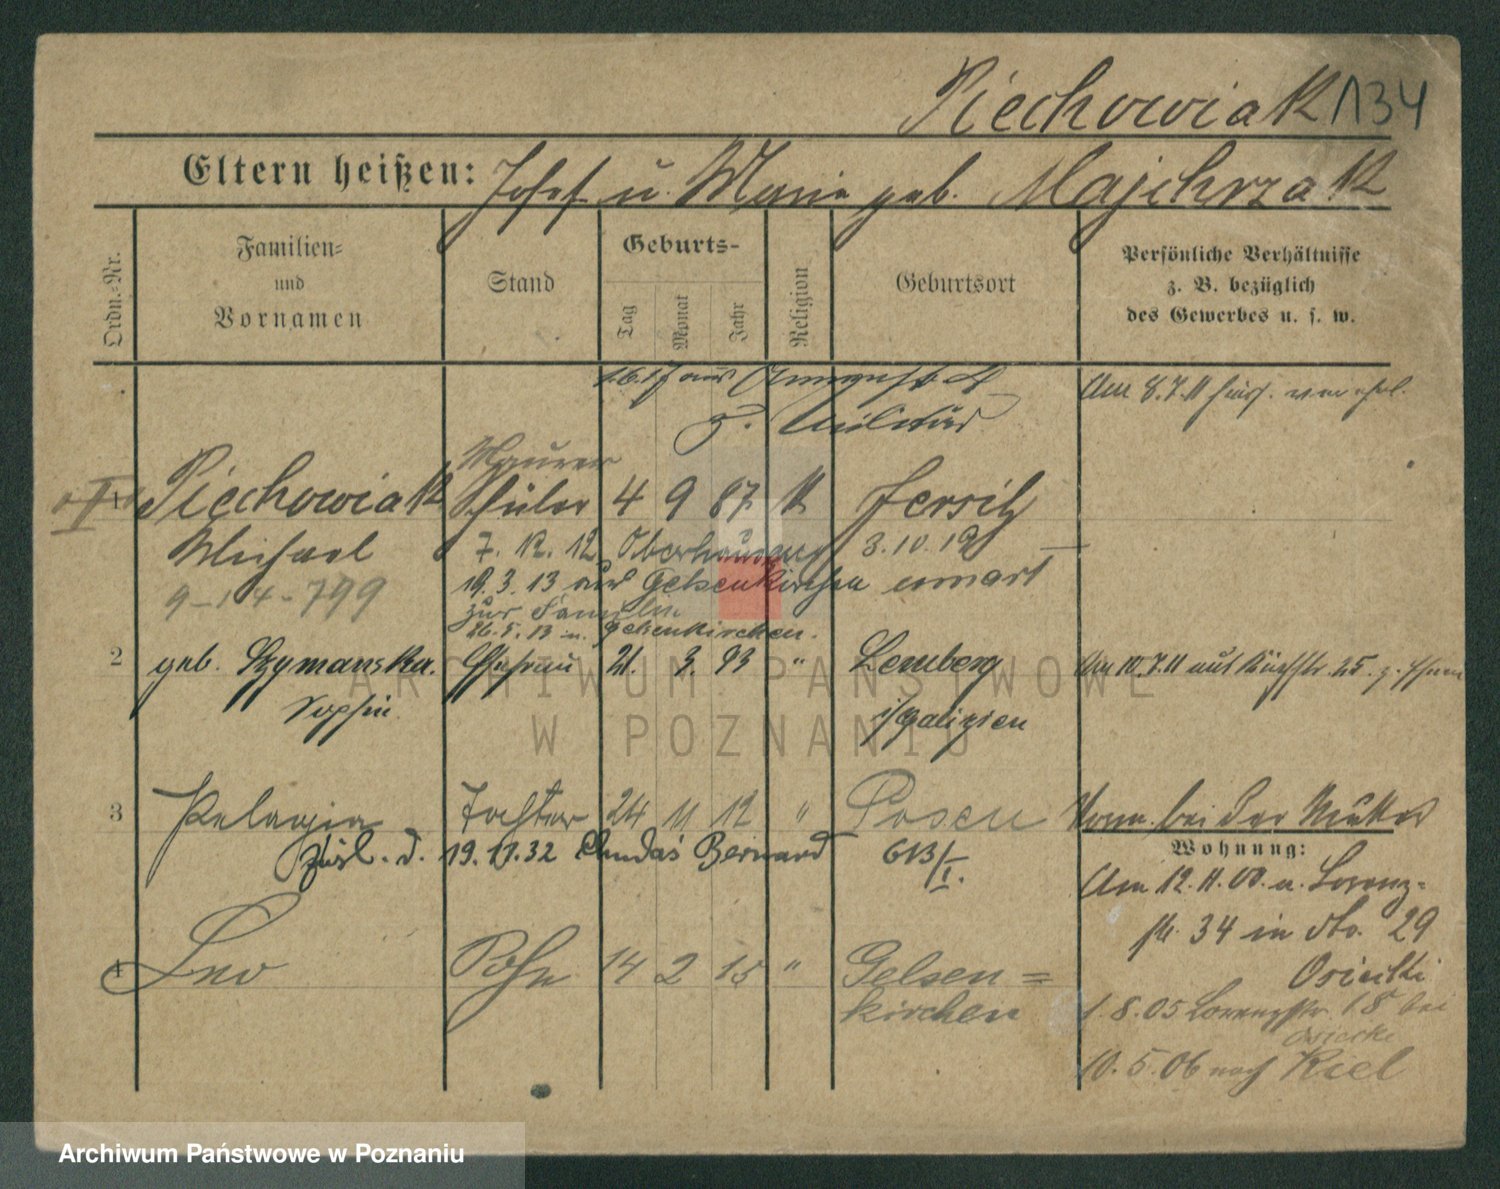 Piechowiak 134
Eltern heißen: Josef u. Marie geb. Majchrzak
Ordn.-Nr.
Familien-
und
Vornamen
Stand
Geburts-
Tag
Monat
Jahr
Religion
Geburtsort
Persönliche Verhältnisse
z. B. bezüglich
des Gewerbes u. s. w.
z. Militär
Am 8.7.11 hier.
Maurer
1 Piechowiak Schüler 4 9 87 K Jersitz
Michael 7. 12. 12 Oberhausen 3.10.12
9-14-799 19.3.13 aus Gelsenkirchen
zur Familie
26.5.13 n. Gelsenkirchen.
2 geb. Szymanska. Ehefrau 21. 3. 93 " Lemberg Am 10.7.11 aus
Sophie i/Galizien
3 Pelagia Tochter 24 11 12 " Posen Vorm. bei der Mutter
19. 11. 32 Bernard 613/I.
Wohnung:
Am 12. 11. 00. a. Lorenz-
str. 34 in dto. 29
Osiecki
4 Leo Sohn 14 2 15 " Gelsen=
kirchen
1.8.05 Lorenzstr. 18 bei
Osiecki
10.5.06 nach Kiel
ARCHIWUM PAŃSTWOWE
W POZNANIU
Archiwum Państwowe w Poznaniu